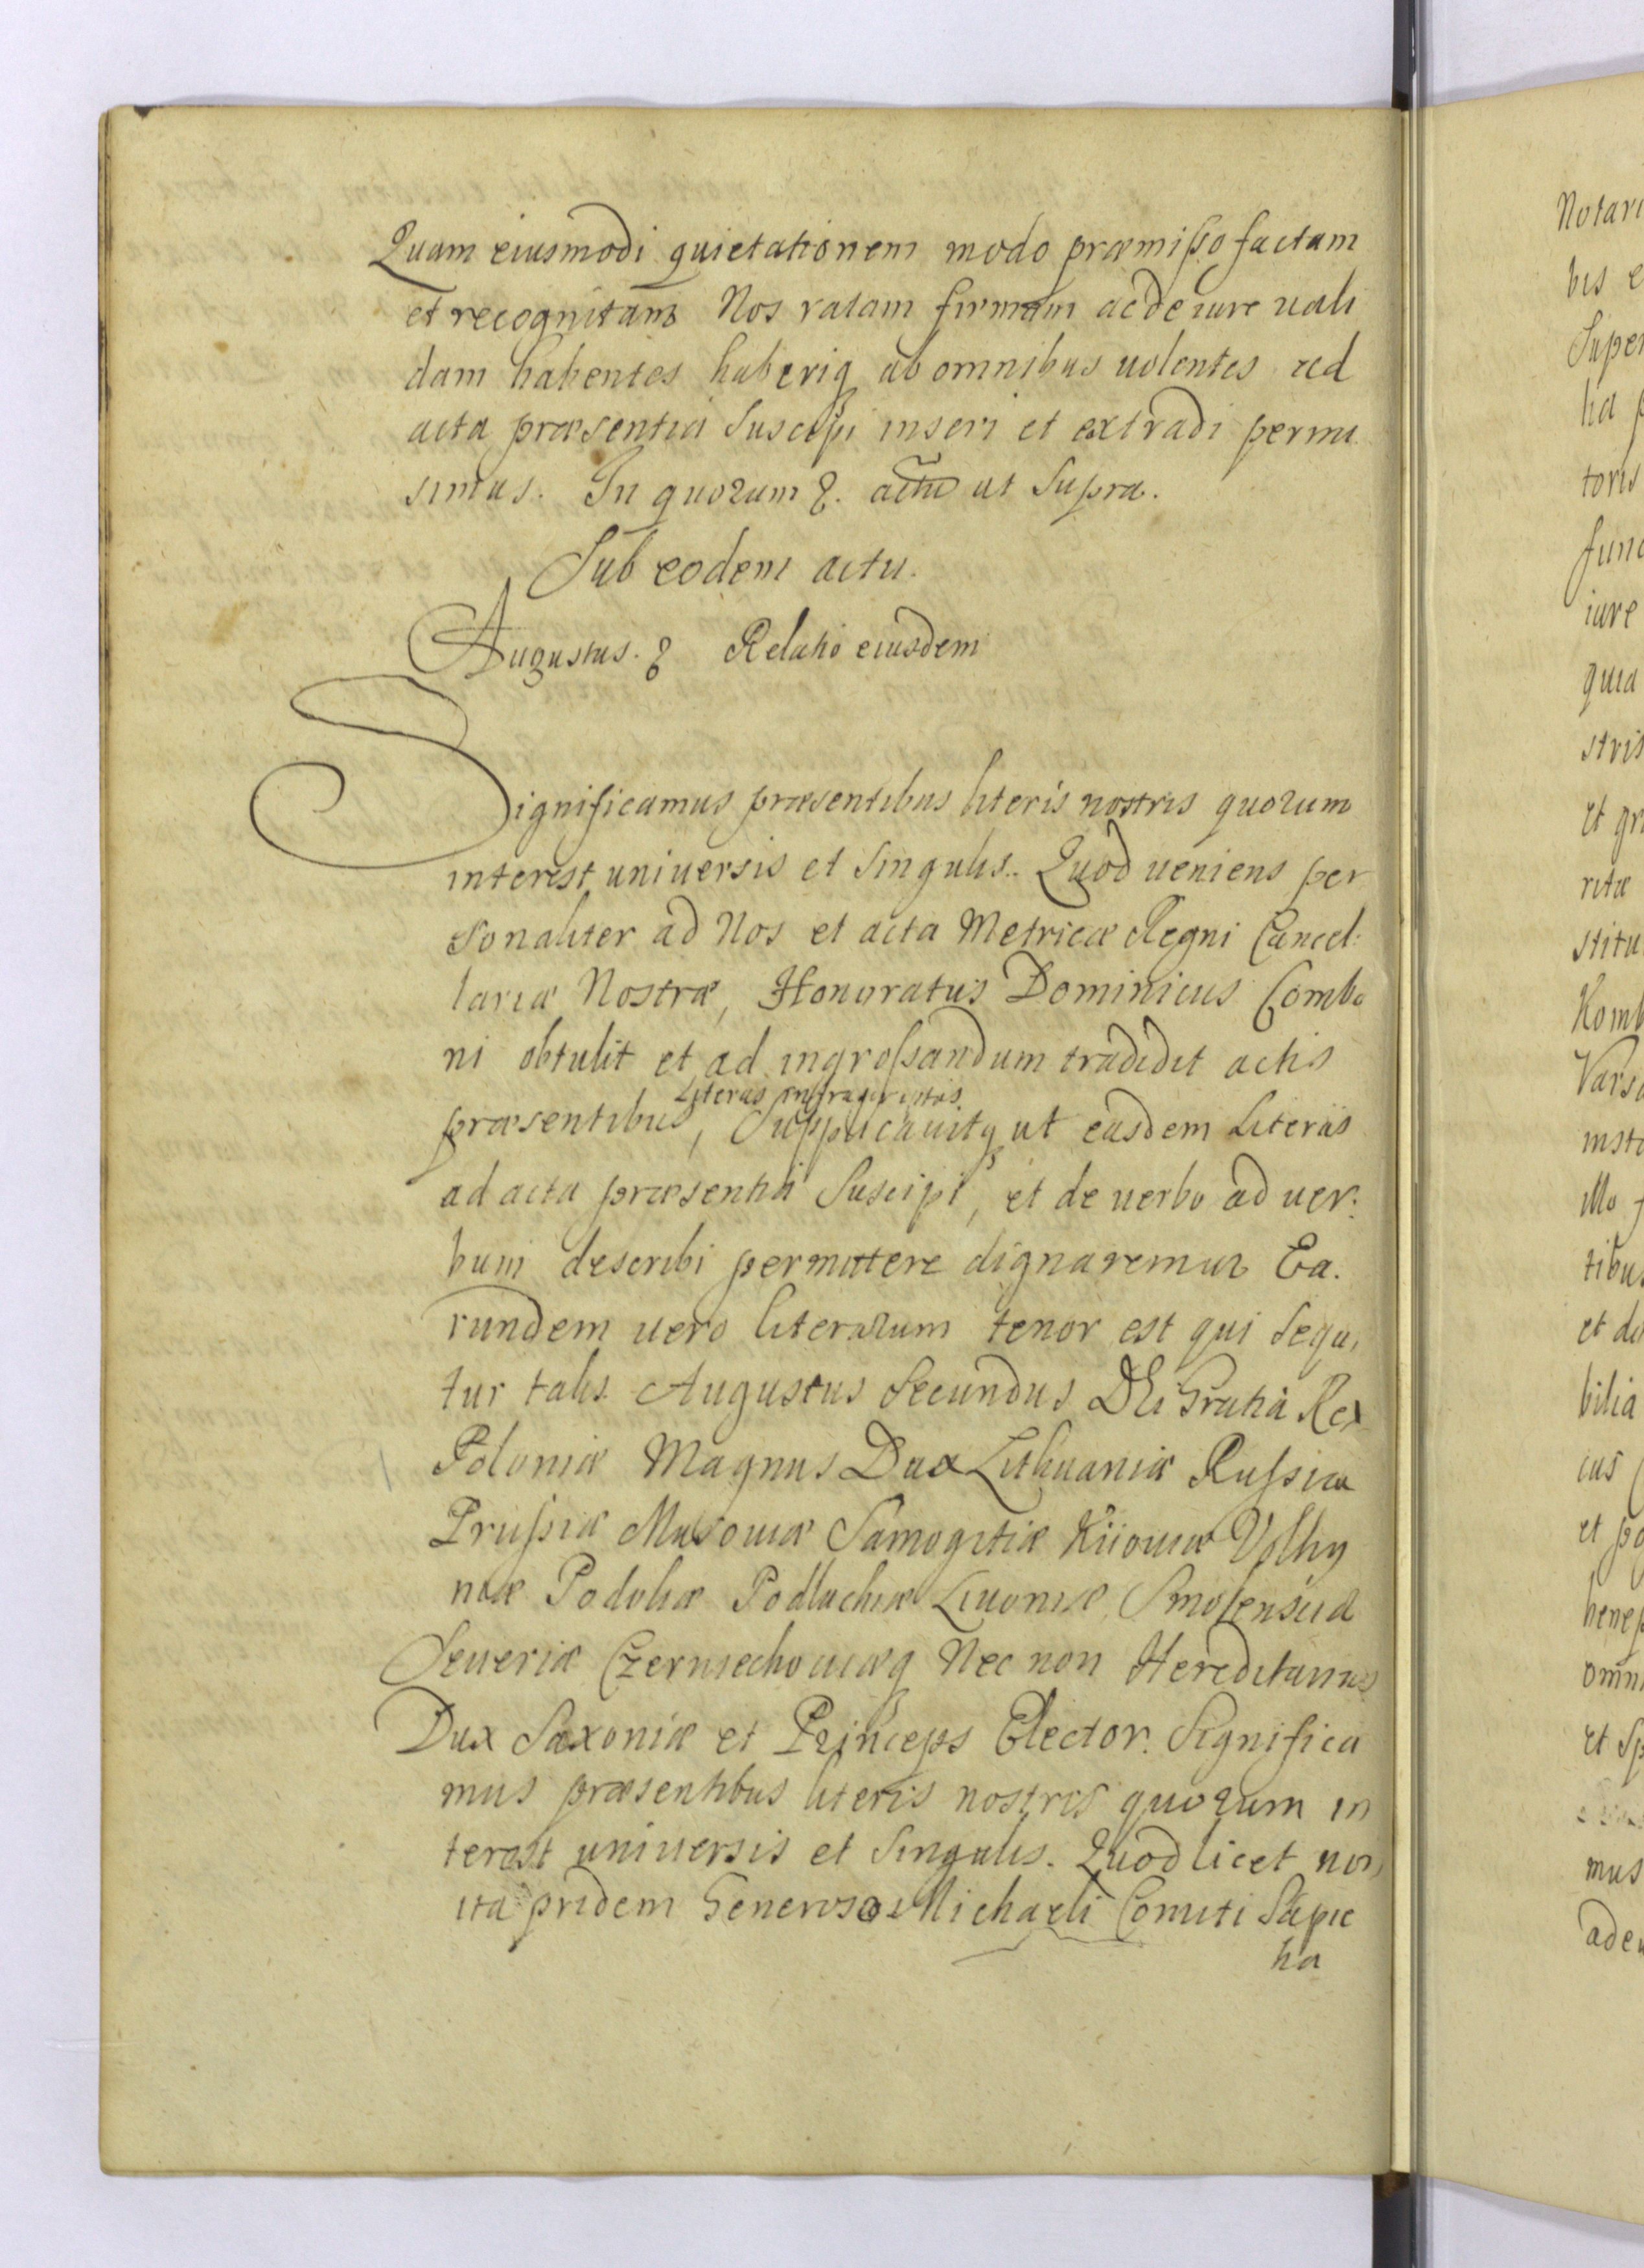 Quam eiusmodi quietationem modo præmisso factam
et recognitam Nos ratam firmam ac de iure uali
dam habentes haberiq ab omnibus uolentes ad
acta præsentia suscipi inseri et extradi permi
simus. In quorum &. actũ ut supra.
Sub eodem actu.
Augustus. & Relatio eiusdem
Significamus præsentibus literis nostris quorum
interest uniuersis et singulis. Quod ueniens per
sonaliter ad Nos et acta Metricæ Regni Cancel:
lariæ Nostræ, Honoratus Dominicus Combo
ni obtulit et ad ingrossandum tradidit actis
Literas infrascriptas
præsentibus, Supplicauitq ut easdem Literas
ad acta præsentia suscipi, et de uerbo ad uer:
bum describi permittere dignaremur Ea.
rundem uero literarum tenor est qui sequi
tur talis Augustus Secundus DEi Gratia Rex
Poloniæ Magnus Dux Lithuaniæ Russiæ
Prussiæ Masouiæ Samogitiæ Kiiouiæ Volhy
niæ Podoliæ Podlachiæ Liuoniæ, Smolensciæ
Seueriæ Czerniechouiæq Nec non Hereditarius
Dux Saxoniæ et Princeps Elector. Significa
mus præsentibus literis nostris quorum in
terest uniuersis et singulis. Quod licet non
ita pridem Generoso Michaeli Comiti Sapie
ha
Notari
bis e
Super
lia p
toris
func
iure
quia
stris
et gr
ritæ
stitu
Komb
Varsa
insta
illo
tibus
et do
bilia
ius
et po
benep
omni
et sp
mus
adeu